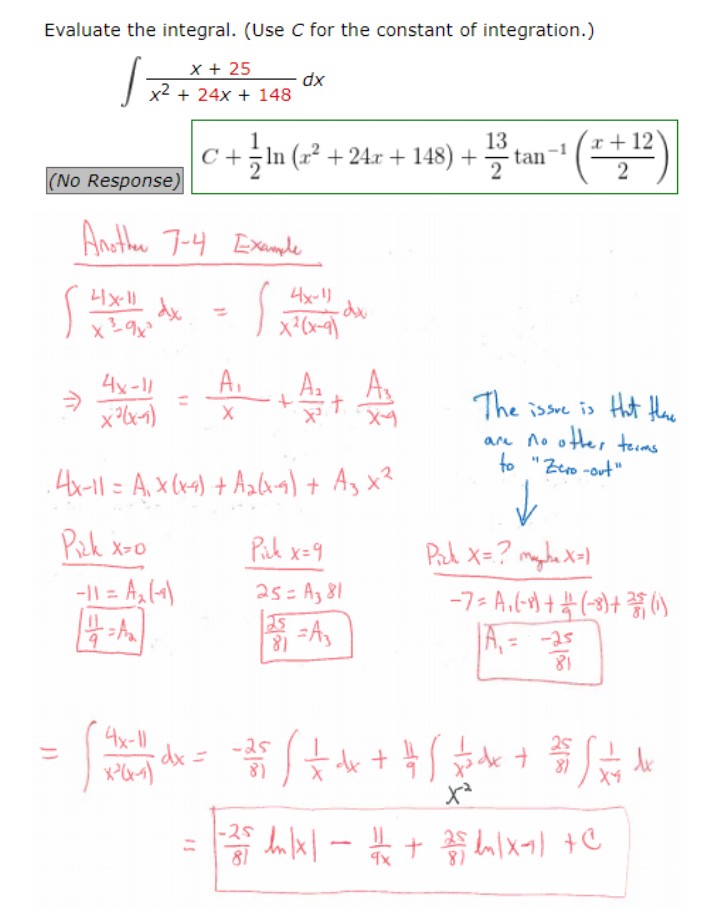 Evaluate the integral. (Use C for the constant of integration.)
∫ (x + 25)/(x² + 24x + 148) dx
(No Response) C + 1/2 ln (x² + 24x + 148) + 13/2 tan⁻¹ ((x + 12)/2)
Another 7-4 Example
∫ (4x-11)/(x³-9x²) dx = ∫ (4x-11)/(x²(x-9)) dx
⇒ (4x-11)/(x²(x-9)) = A₁/x + A₂/x² + A₃/(x-9)
The issue is that there
are no other terms
to "Zero-out"
4x-11 = A₁ x(x-9) + A₂(x-9) + A₃ x²
Pick x=0 Pick x=9 Pick x=? maybe x=1
-11 = A₂(-9) 25 = A₃ 81 -7 = A₁(-8) + 11/9 (-8) + 25/81 (1)
11/9 = A₂ 25/81 = A₃ A₁ = -25/81
= ∫ (4x-11)/(x²(x-9)) dx = -25/81 ∫ 1/x dx + 11/9 ∫ 1/x² dx + 25/81 ∫ 1/(x-9) dx
x²
= -25/81 ln|x| - 11/9x + 25/81 ln|x-9| + C